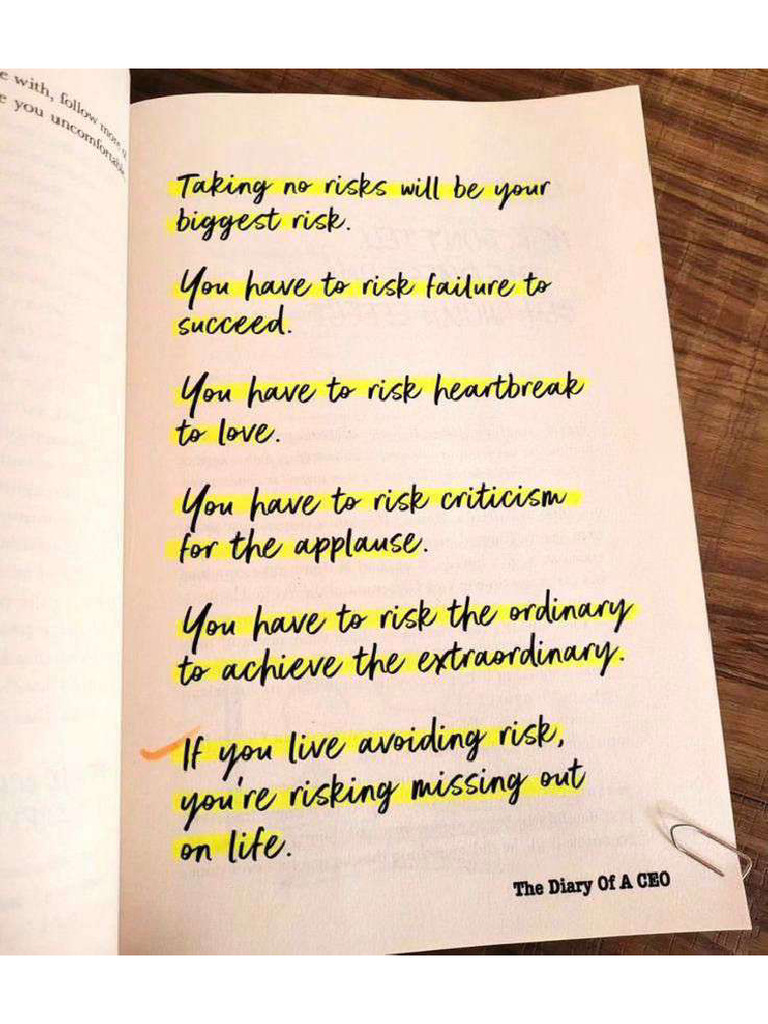 e with, follow more
e you uncomfortable
Taking no risks will be your
biggest risk.
You have to risk failure to
succeed.
You have to risk heartbreak
to love.
You have to risk criticism
for the applause.
You have to risk the ordinary
to achieve the extraordinary.
If you live avoiding risk,
you're risking missing out
on life.
The Diary Of A CEO